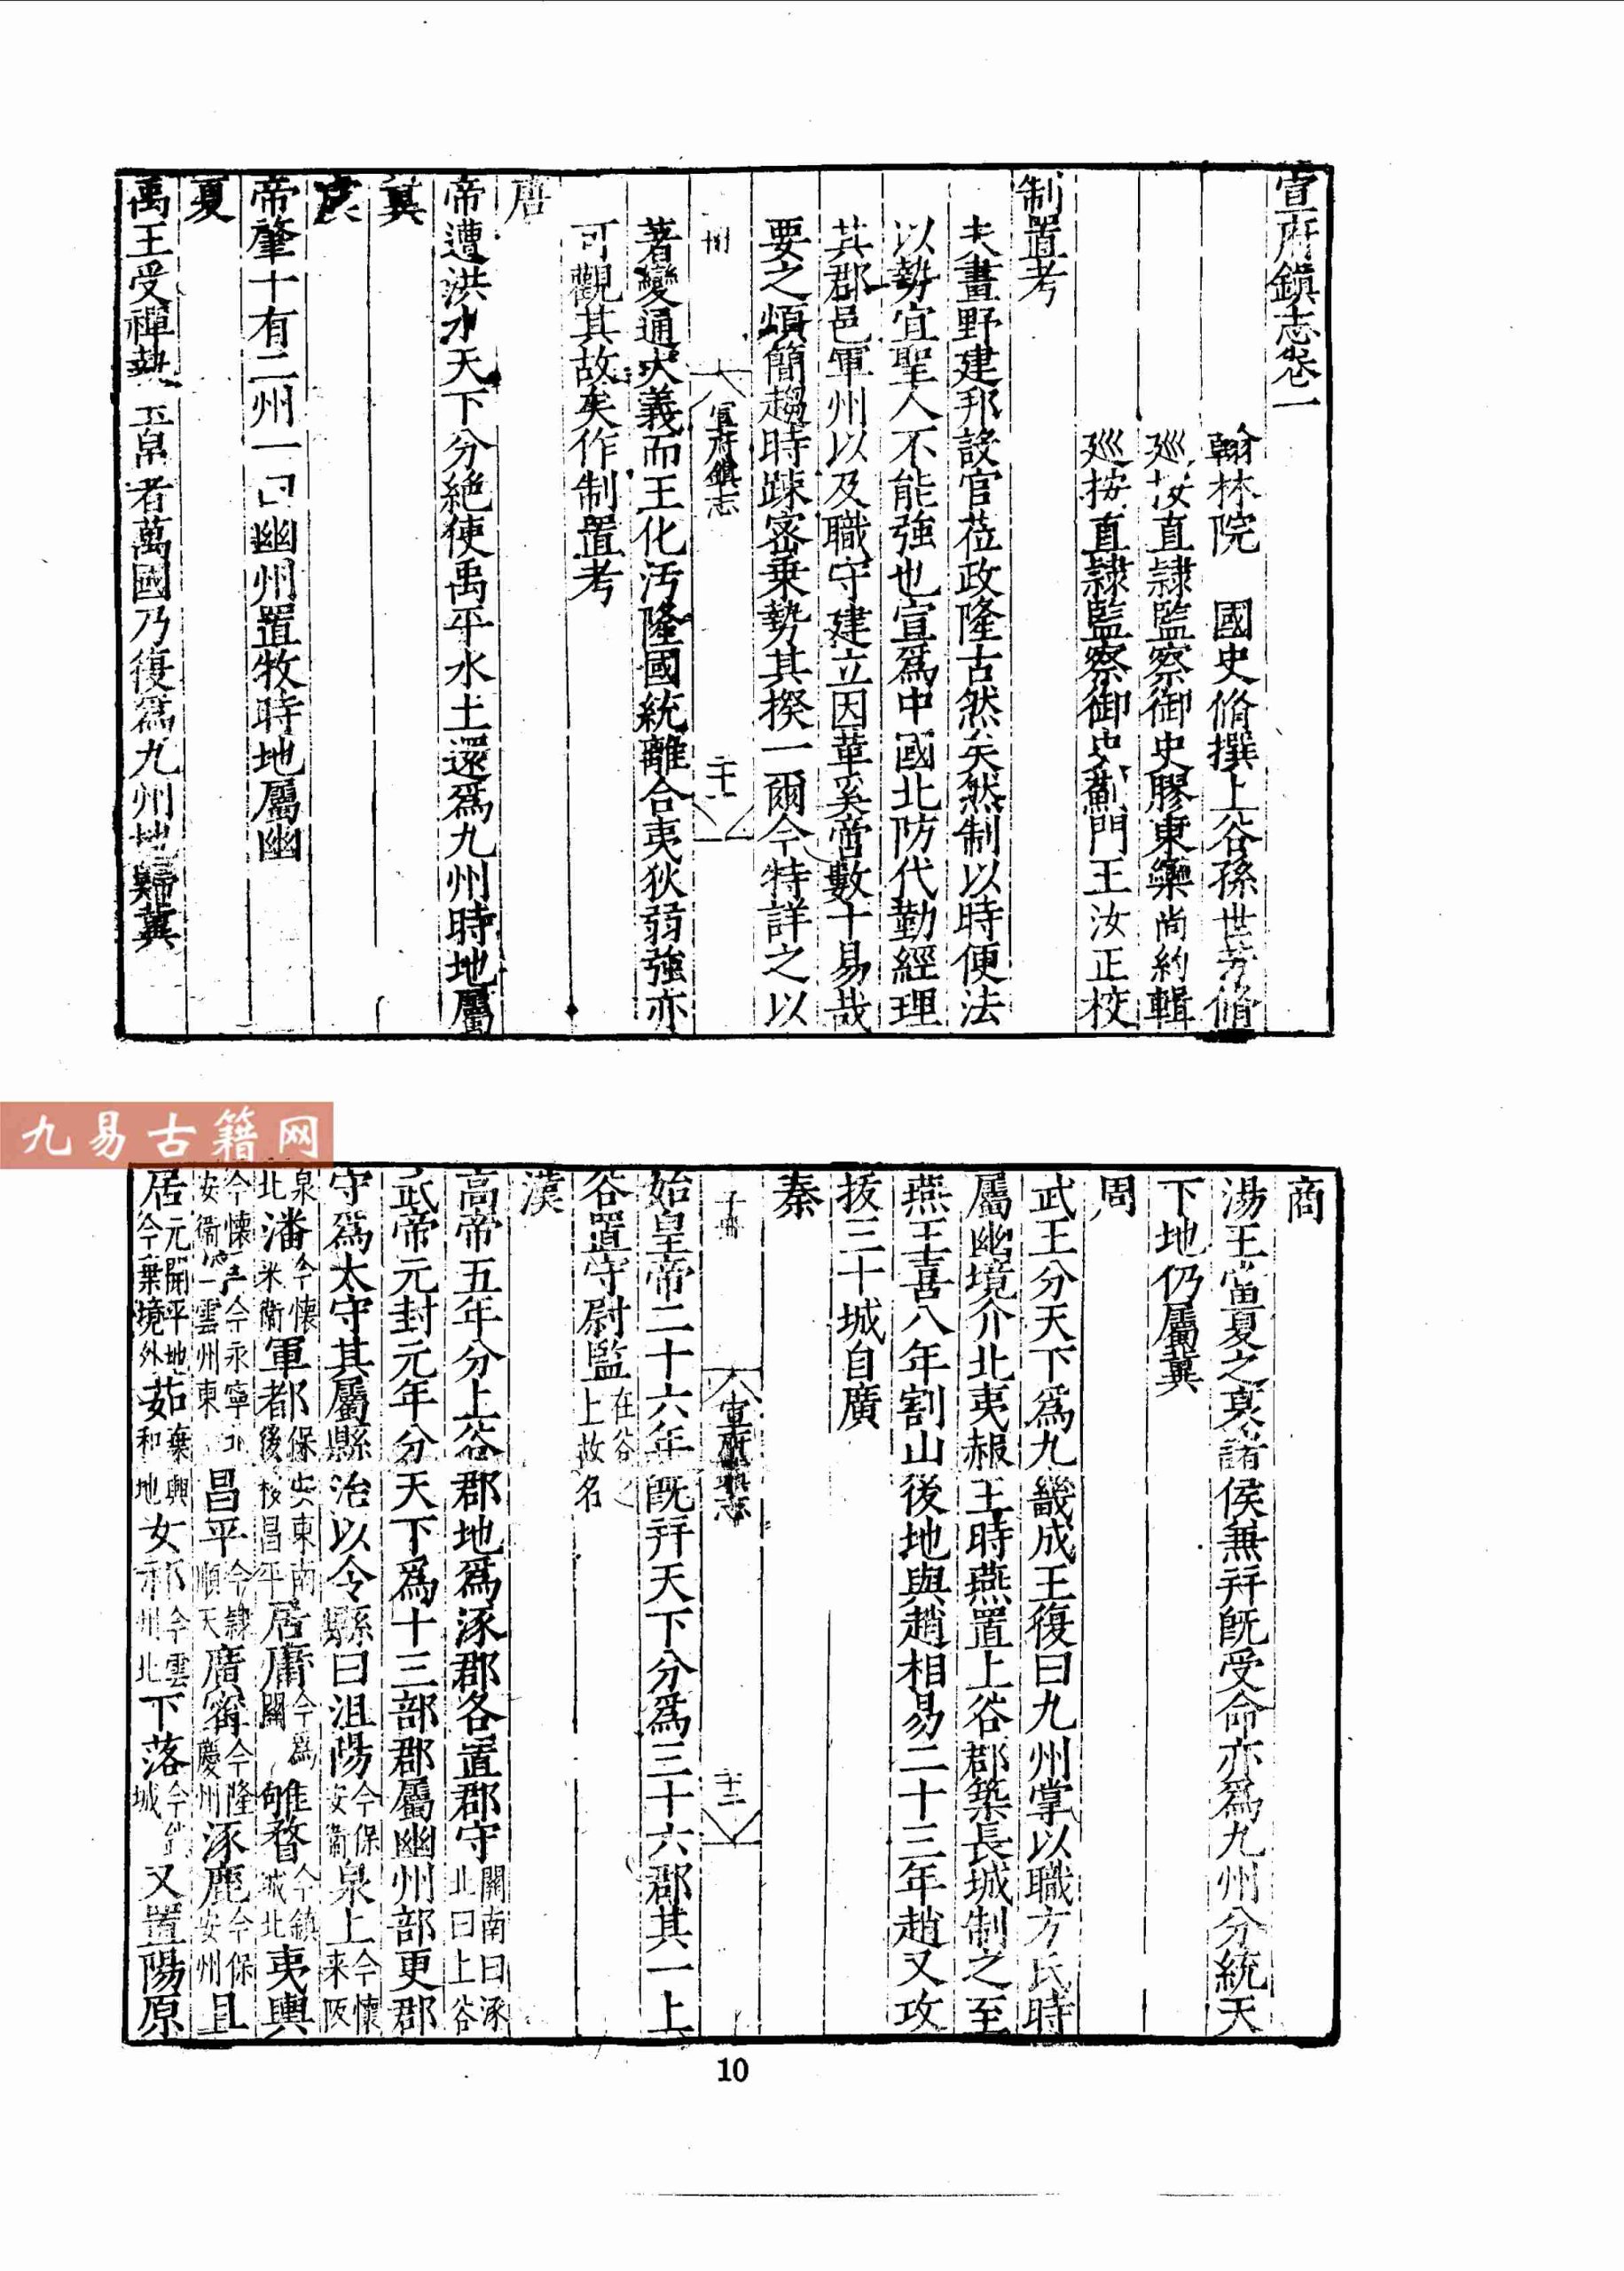 宣府鎮志卷一
翰林院 國史脩撰上谷孫世芳脩
廵按直隷監察御史膠東欒尚約輯
廵按直隷監察御史薊門王汝正校
制置考
夫畫野建邦設官莅政隆古然矣然制以時便法
以勢宜聖人不能強也宣爲中國北防代勤經理
其郡邑軍州以及職守建立因革奚啻數十易哉
要之煩簡趨時踈宻乗勢其揆一爾今特詳之以
宣府鎮志
二十一
著變通大義而王化汚隆國統離合夷狄弱強亦
可觀其故矣作制置考
唐
帝遭洪水天下分絶使禹平水土還爲九州時地屬
冀
虞
帝肇十有二州一曰幽州置牧時地屬幽
夏
禹王受禪執玉帛者萬國乃復爲九州地歸冀
九易古籍网
商
湯王當夏之衰諸侯兼并旣受命亦爲九州分統天
下地仍屬冀
周
武王分天下爲九畿成王復曰九州掌以職方氏時
屬幽境介北夷赧王時燕置上谷郡築長城制之至
燕王喜八年割山後地與趙相易二十三年趙又攻
拔三十城自廣
秦
宣府鎮志
二十二
始皇帝二十六年旣并天下分爲三十六郡其一上
谷置守尉監在谷之上故名
漢
高帝五年分上谷郡地爲涿郡各置郡守關南曰涿北曰上谷
武帝元封元年分天下爲十三部郡屬幽州部更郡
守爲太守其屬縣治以令縣曰沮陽今保安衞泉上今懷来陂
泉北潘今懷来衞軍都保安東南後移昌平居庸今爲關雊瞀今鎮城北夷輿
今懷安衞寧今永寧北一雲州東昌平今隷順天廣甯今隆慶州涿鹿今保安州且
居元開平地今棄境外茹棄興和地女祁今雲州北下落今城又置陽原
10